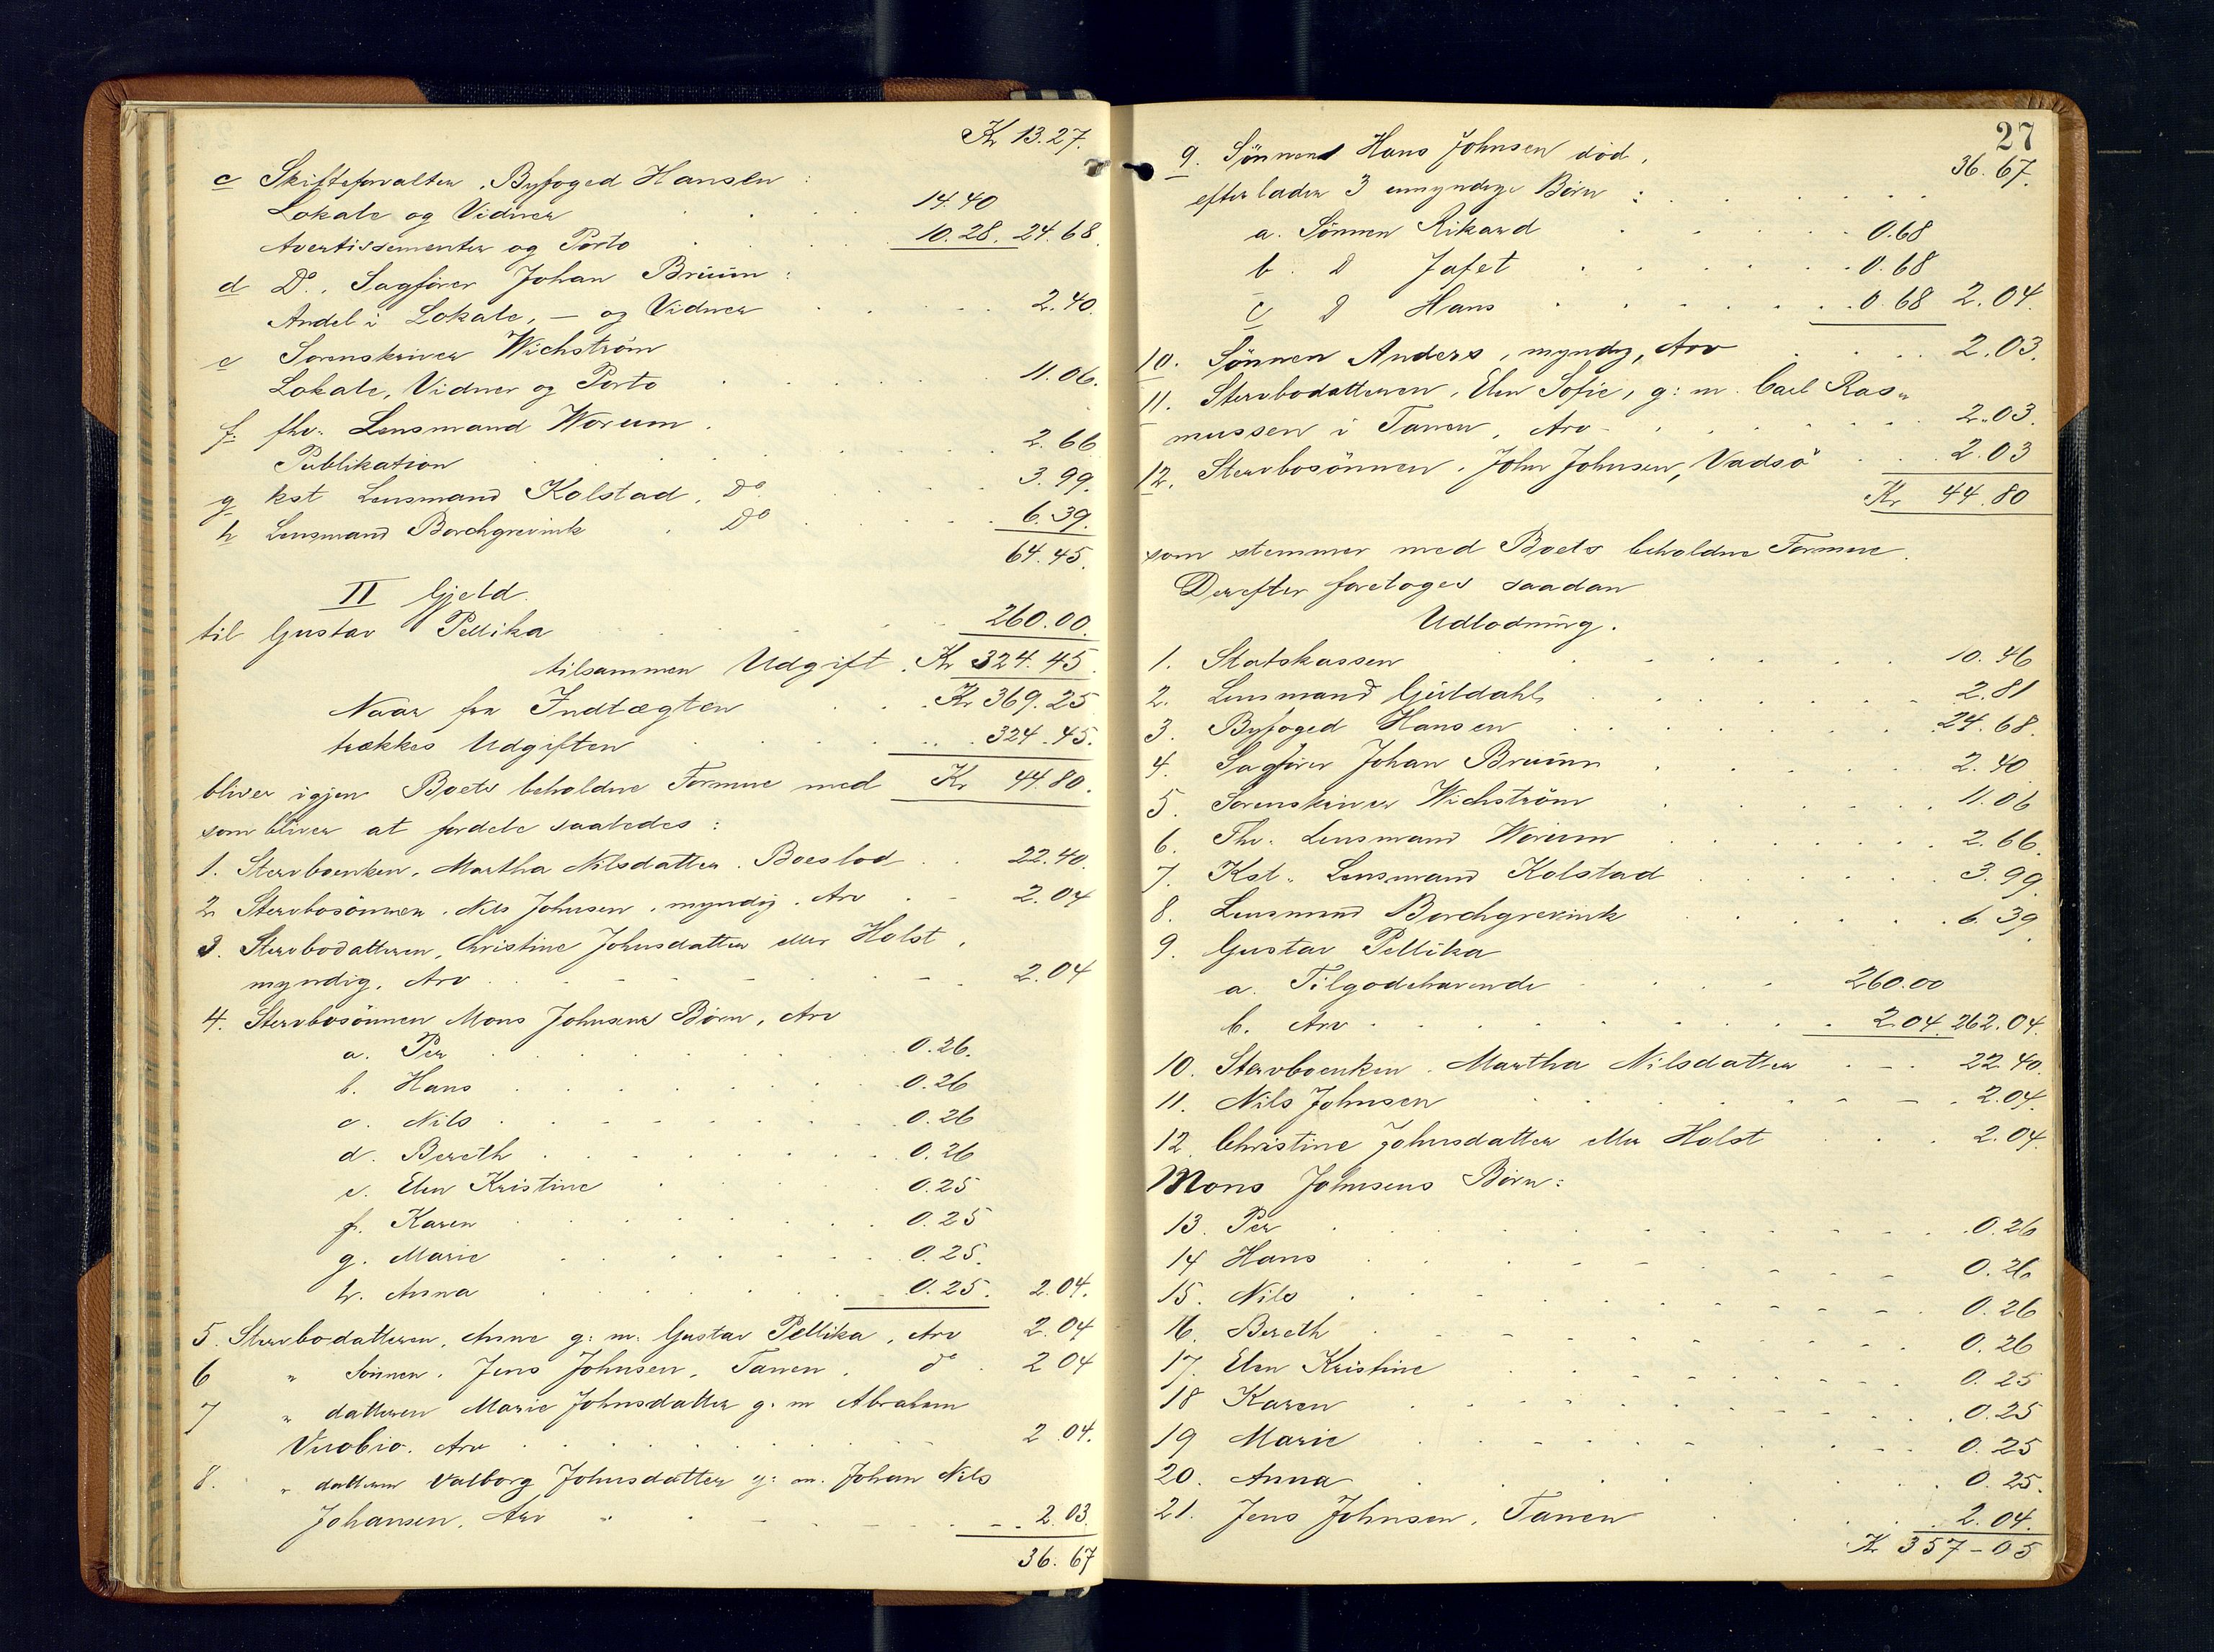 Kr 13.27.
c Skifteforvalter, Byfoged Hansen :
Lokale og Vidner 14.40
Avertissementer og Porto 10.28. 24.68.
d Do. Sagfører Johan Bruun :
Andel i Lokale, – og Vidner 2.40.
e Sorenskriver Wichstrøm
Lokale, Vidner og Porto 11.06.
f. fhv. Lensmand Worum.
Publikation 2.66
g kst Lensmand Kolstad. Do. 3.99.
h Lensmand Borchgrevink . Do 6.39.
64.45.
II Gjeld.
til Gustav Pellika 260.00.
tilsammen Udgift. Kr 324.45.
Naar fra Indtægten Kr 369.25
trækkes Udgiften 324.45.
bliver igjen Boets beholdne Formue med Kr 44.80.
som bliver at fordele saaledes :
1. Stervboenken, Martha Nilsdatter. Boeslod 22.40.
2 Stervbosönnen. Nils Johnsen. myndig. Arv 2.04
3. Stervbodatteren, Christine Johnsdatter eller Holst.
myndig. Arv 2.04
4. Stervbosönnen Mons Johnsens Börn, Arv
a. Per 0.26.
b. Hans 0.26
c. Nils 0.26
d. Bereth 0.26
e. Elen Kristine 0.25
f. Karen 0.25
g. Marie 0.25.
h. Anna 0.25. 2.04.
5. Stervbodatteren, Anne g: m: Gustav Pellika, Arv 2.04
6 " Sönnen. Jens Johnsen, Tanen. do . 2 04
7 " datteren Marie Johnsdatter g. m Abraham
Vuobio. Arv 2.04.
8. " datteren Valborg Johnsdatter g: m. Johan Nils
Johansen. Arv 2.03.
36.67
27
9. Sönnens Hans Johnsen död, 36.67.
efterlader 3 umyndige Börn :
a. Sönnen Rikard 0.68
b. D Jafet 0.68
c D Hans 0.68 2.04.
10. Sönnen Anders, myndig, Arv 2.03.
11. Stervbodatteren, Elen Sofie, g: m. Carl Ras-
mussen i Tanen, Arv 2.03.
12. Stervbosönnen, John Johnsen, Vadsö 2.03
Kr 44.80
som stemmer med Boets beholdne Formue.
Derefter foretoges saadan
Udlodning.
1. Statskassen 10.46
2. Lensmand Gjeldahl, 2.81
3. Byfoged Hansen 24.68.
4. Sagfører Johan Bruun 2.40
5. Sorenskriver Wichström 11.06
6. Fhv. Lensmand Worum 2.66.
7. Kst. Lensmand Kolstad 3.99
8. Lensmand Borchgrevink 6.39
9. Gustav Pellika
a. Tilgodehavende 260.00
b. Arv 2.04. 262.04.
10. Stervboenken. Martha Nilsdatter 22.40.
11. Nils Johnsen 2.04.
12. Christine Johnsdatter eller Holst 2.04.
Mons Johnsens Börn:
13. Per 0.26
14 Hans 0.26
15. Nils 0.26
16. Bereth 0.26
17. Elen Kristine 0.25
18 Karen 0.25
19 Marie 0.25
20. Anna 0.25.
21. Jens Johnsen, Tanen 2.04.
Kr 357-05